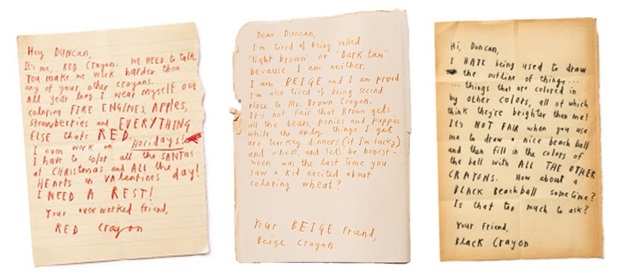 Hey DUNCAN,
It's me, RED Crayon. WE NEED to talk.
You make me work harder than
any of your other crayons.
All year long I wear myself out
coloring FIRE ENGINES, Apples,
Strawberries and EVERYTHING
ELSE that's RED.
I even work on Holidays!
I have to color all the SANTAS
at CHRISTMAS and ALL the
HEARTS on VALENTINE'S day!
I NEED A REST!
Your overworked friend,
RED Crayon
Dear Duncan,
I'm tired of being called
"light brown" or "Dark tan"
because I am neither.
I am BEIGE and I am proud.
I'm also tired of being second
place to Mr. Brown Crayon.
It's not fair that Brown gets
all the bears, ponies and puppies
while the only things I get
are turkey dinners (if I'm lucky)
and wheat, and let's be honest-
when was the last time you
saw a kid excited about
coloring wheat?
Your BEIGE friend,
Beige Crayon
Hi, Duncan,
I HATE being used to draw
the outline of things...
... things that are colored in
by other colors, all of which
think they're brighter than me!
It's NOT FAIR when you use
me to draw a nice beach ball
and then fill in the colors of
the ball with ALL THE OTHER
CRAYONS. How about a
BLACK Beachball sometime?
Is that too much to ask?
Your friend,
Black Crayon